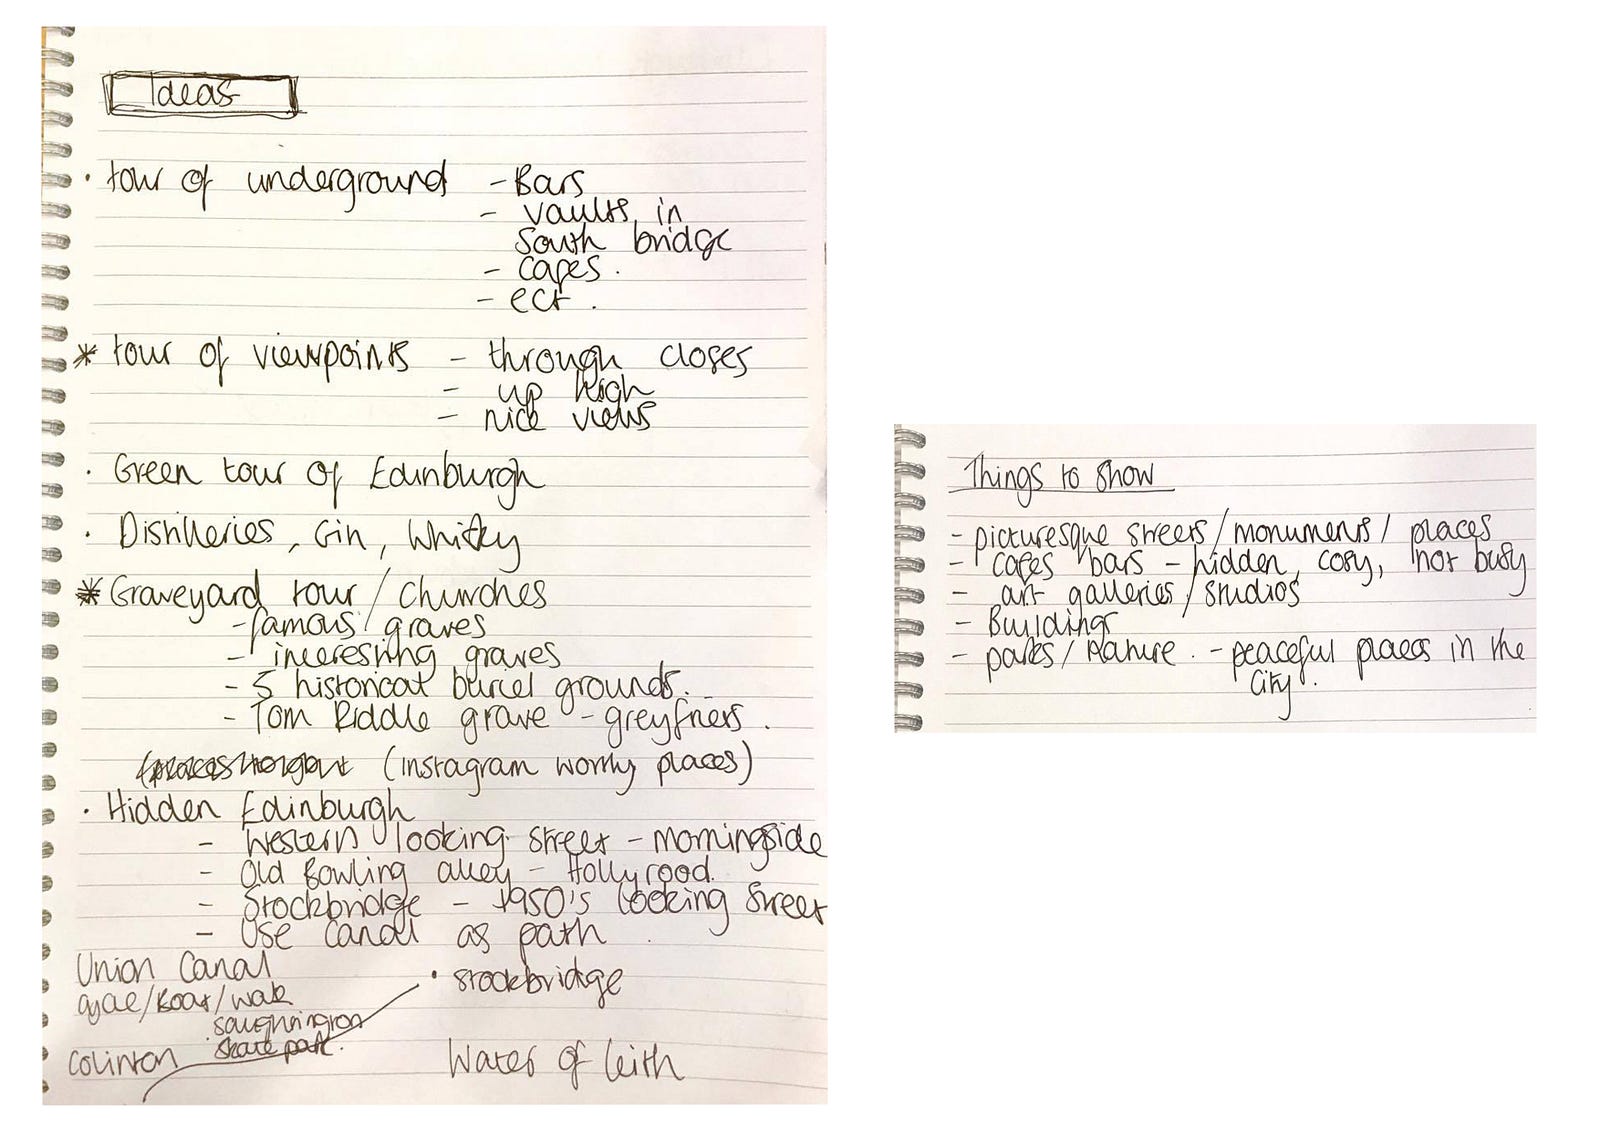 Ideas
· tour of underground - Bars
- vaults in
South bridge
- cafes.
- ect.
* tour of viewpoints - through closes
- up high
- nice views
· Green tour of Edinburgh
· Distilleries, Gin, Whisky
* Graveyard tour / Churches
- famous graves
- interesting graves
- 5 historical buriel grounds.
- Tom Riddle grave - greyfriers.
(instagram worthy places)
· Hidden Edinburgh
- Western looking street - morningside
- Old Bowling alley - Hollyrood.
- Stockbridge - 1950's looking street
- Use canal as path
Union Canal
cycle/Boat/walk
saughnington
skate park.
Colinton
· stockbridge
Water of leith
Things to show
- picturesque streets/monuments/ places
- cafes bars - hidden, cosy, not busy
- art galleries/studios
- Buildings
- parks/nature. - peaceful places in the
city.